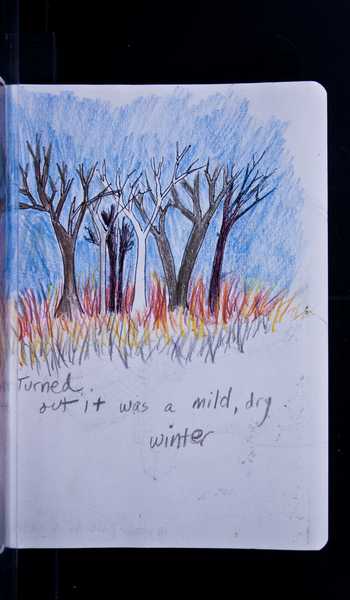 Turned.
out it was a mild, dry
winter